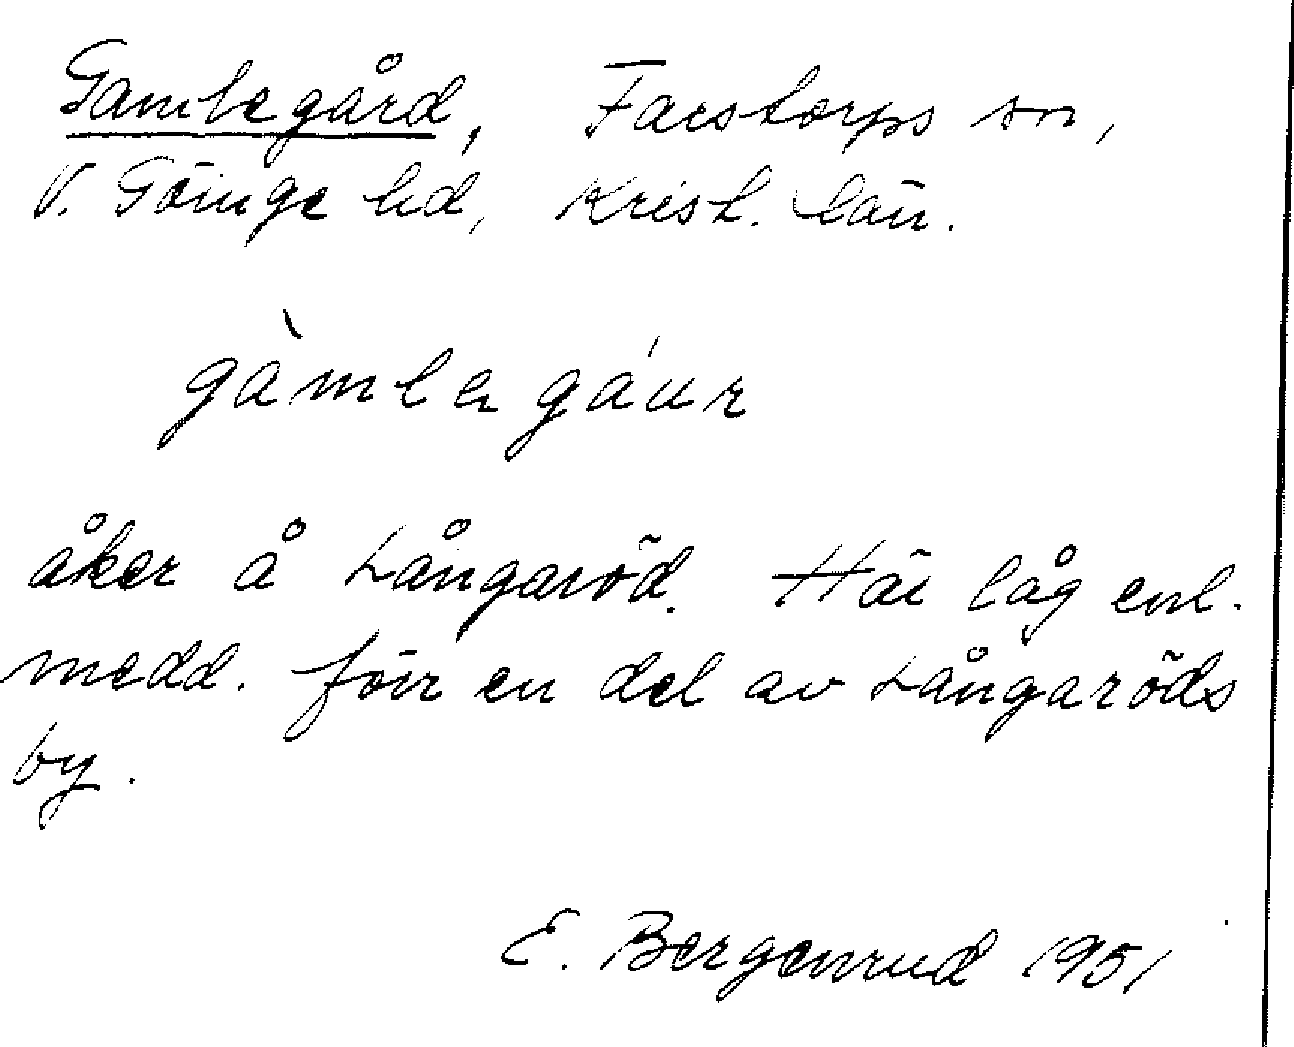 Gamlegård, Farstorps sn,
V. Göinge hd, Krist. län.
gàmla gáur
åker å Långaröd. Här låg enl.
medd. förr en del av Långaröds
by.
E. Bergenrud 1951